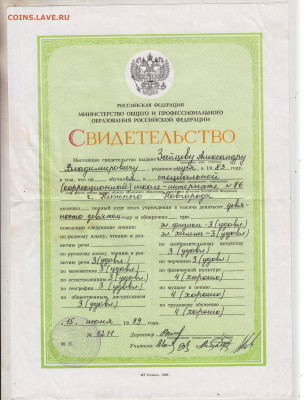 COINS.LAVE.RU
РОССИЙСКАЯ ФЕДЕРАЦИЯ
МИНИСТЕРСТВО ОБЩЕГО И ПРОФЕССИОНАЛЬНОГО
ОБРАЗОВАНИЯ РОССИЙСКОЙ ФЕДЕРАЦИИ
СВИДЕТЕЛЬСТВО
Настоящее свидетельство выдано Зайцеву Александру
Владимировичу родившемуся в 1982
в том, что он обучался специальной
(коррекционной) школе-интернате № 86
г. Нижнего Новгорода
полный курс этого учреждения в тысяча девятьсот девя
носто девятом году и обнаружил при
поведении следующие знания: по физике-3(удовл)
по родному языку, чтению и раз- по химии-3(удовл)
витию речи
по русскому языку, чтению и раз-
витию речи 3(удовл)
по математике 3(удовл)
по естествознанию 3(удовл)
по географии 3(удовл)
по общественным дисциплинам
3(удовл)
по изобразительному искусству
3(удовл)
по черчению 3(удовл)
по физической культуре
4(хорошо)
по музыке и пению
4(хорошо)
по трудовому обучению
4(хорошо)
15 июня 1999 года.
№ 3211
Директор
М.П.
Учителя: